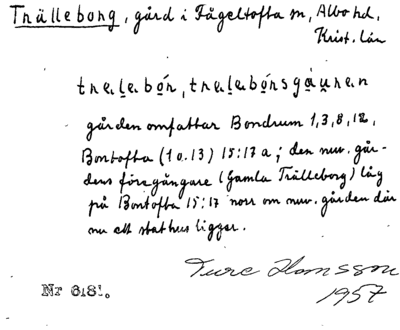 Trälleborg, gård i Fågeltofta sn, Albo hd,
Krist. län
trɐlabór, trɐlabórsgáuren
gården omfattar Bondrum 1,3,8,12,
Bontofta (10.13) 15:17 a; den nuv. går-
dens föregångare (Gamla Trälleborg) låg
på Bontofta 15:17 norr om nuv. gården där
nu ett stathus ligger.
Ture Hansson
1957
Nr 618